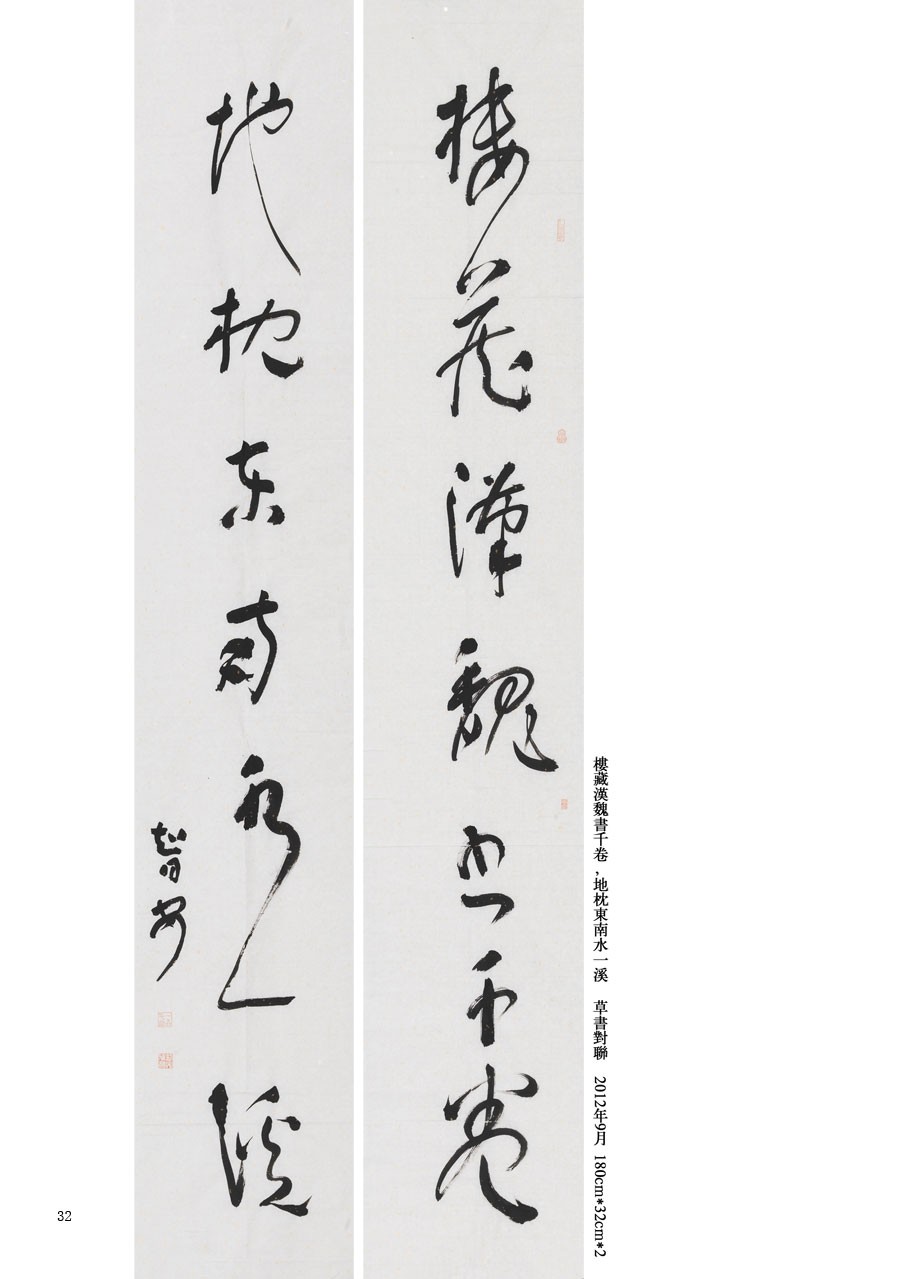 楼藏漢魏书千卷
地枕东南水一溪
樓藏漢魏書千卷，地枕東南水一溪　草書對聯　2012年9月 180cm*32cm*2
32